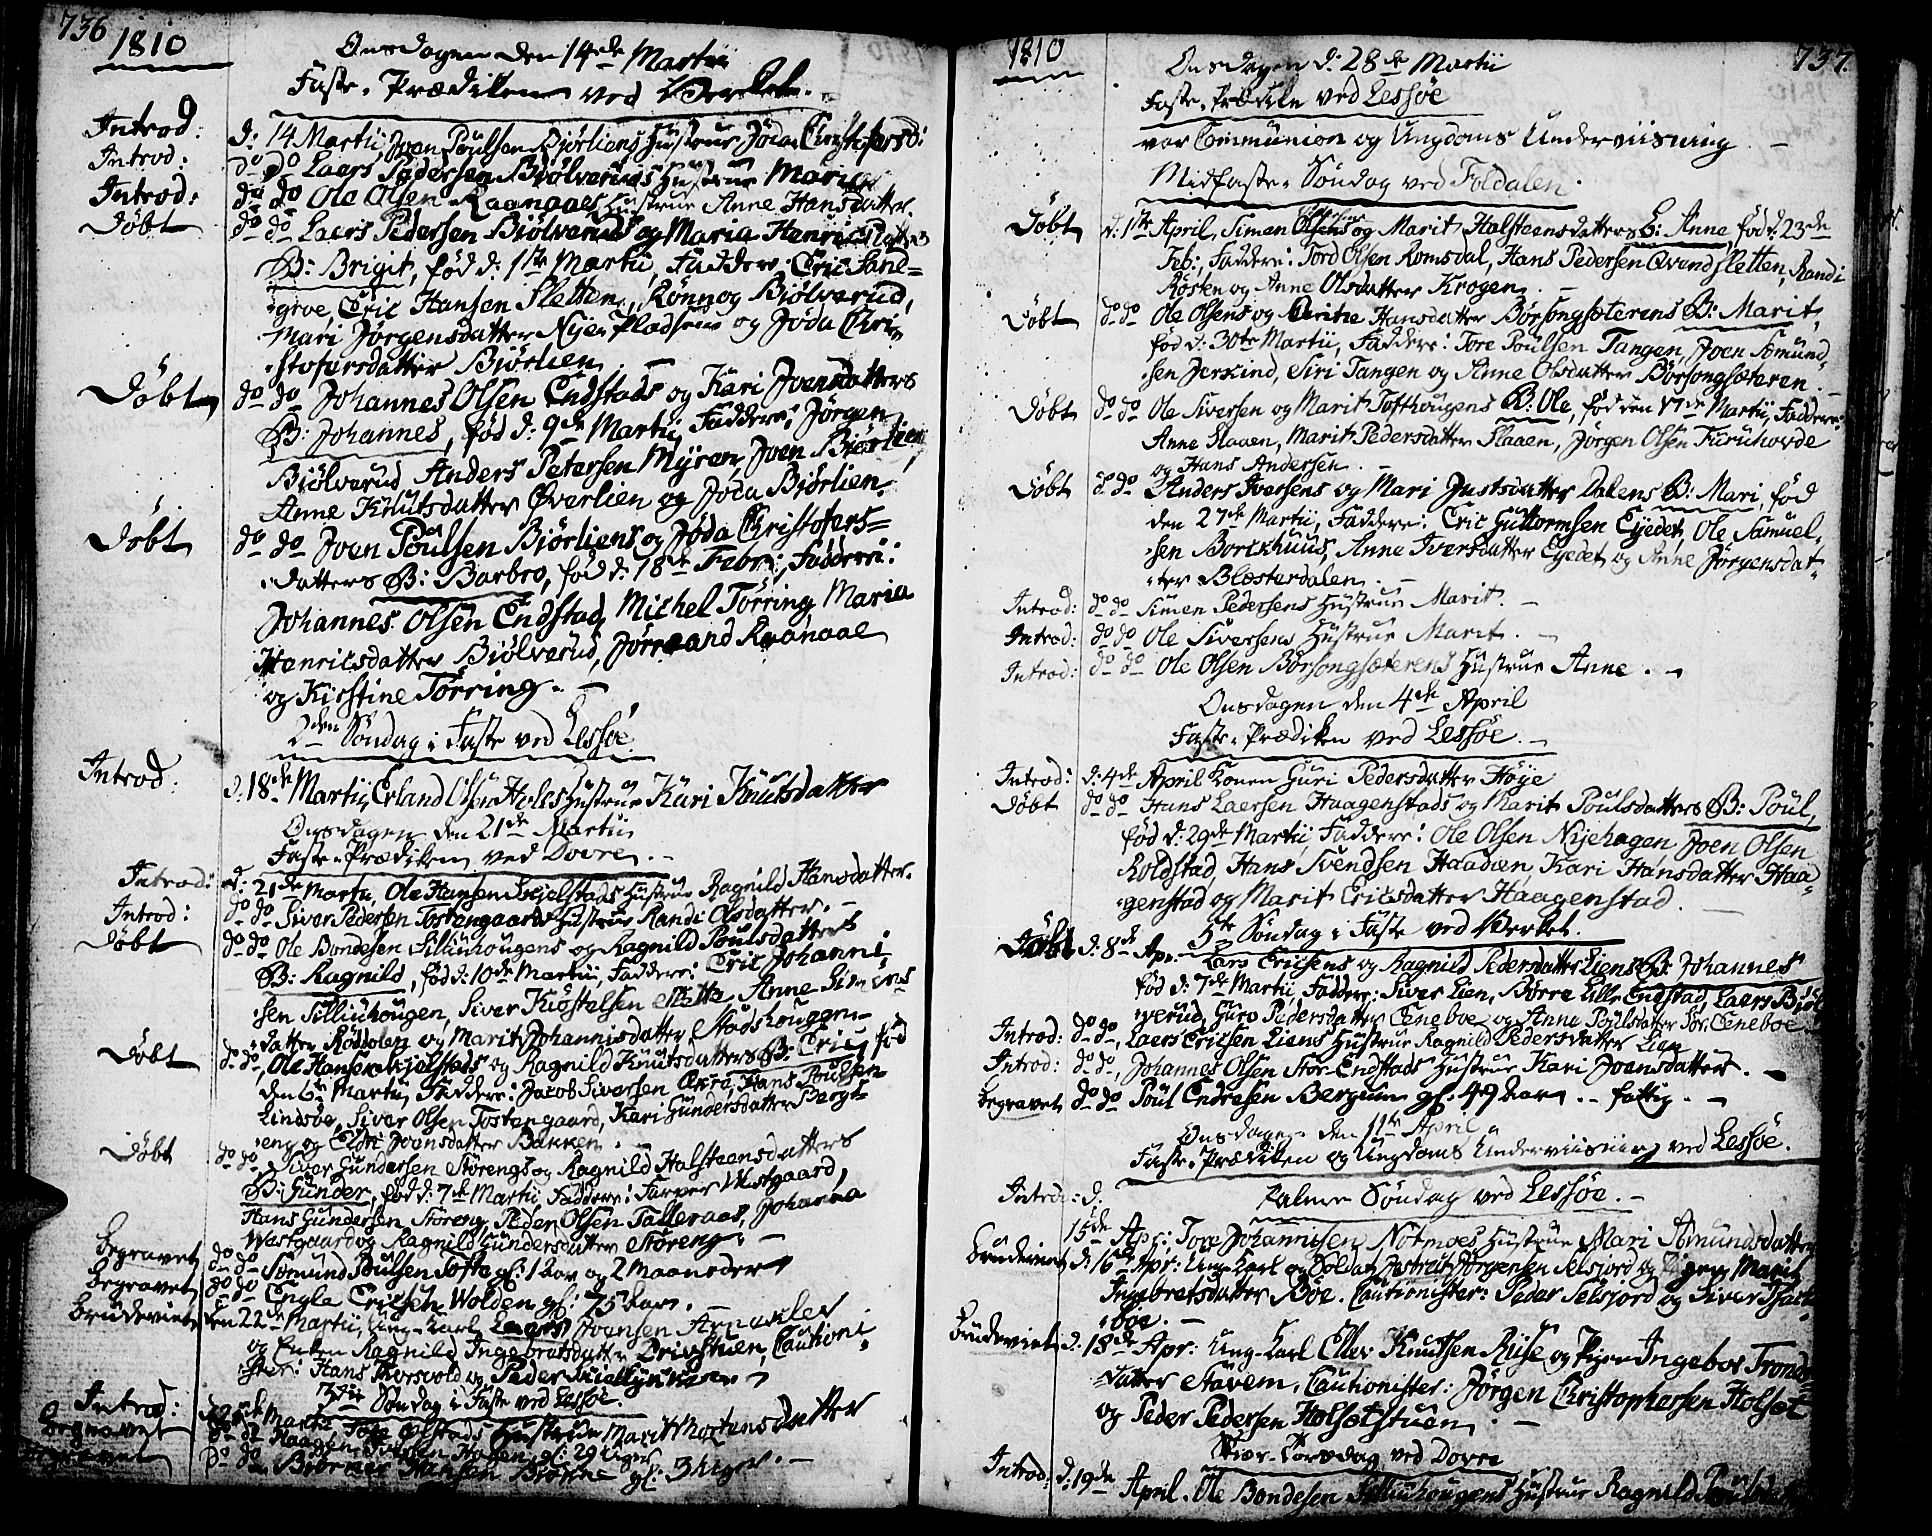 736
1810
Onsdagen den 14de Martii
Faste-Prædiken ved Værket.
Introd: d: 14 Martii, Joen Poulsen Biørliens Hustrue Jøda Christofersd:
Introd: do do Laers Pedersen Biølveruds Hustrue Maria
Introd: do do Ole Olsen Raanaaes Hustrue Anne Hansdatter.
Døbt do do Laers Pedersen Biølveruds og Maria Henricsdatters
B: Brigit, fød d: 1ste Martii, Faddere: Eric Sand=
grve, Eric Hansen Sletten, Rønnog Biølverud,
Mari Jørgensdatter Nyei-Pladsen og Jøda Chri=
stofersdatter Biørlien.
Døbt do do Johannes Olsen Endstads og Kari Joensdatters
B: Johannes, fød d: 9de Martii, Faddere: Jørgen
Biølverud, Anders Petersen Myren, Joen Biørlien,
Anne Knutsdatter Øverlien og Joda Biørlien.
Døbt do do Joen Poulsen Biørliens og Jøda Christofers=
datters B: Barbro, fød d: 18de Febr:, Faddere:
Johannes Olsen Endstad, Michel Tørring, Maria
Henricsdatter Biølverud, Jørraand Raanaae
og Kirstine Tørring.
2den Søndag i Faste ved Lessøe
Introd: d: 18de Martii, Erland Olsen Holes Hustrue Kari Knutsdatter
Onsdagen den 21de Martii
Faste-Prædiken ved Dovre.
Introd: d: 21de Martii, Ole Hansen Skielstads Hustrue Ragnild Hansdatter.
Introd: do do Siver Pedersen Tostengaards Hustrue Randi Olsdatter.
Døbt do do Ole Bondesen Silliuhougens og Ragnild Poulsdatters
B: Ragnild, fød d: 10de Martii, Faddere: Eric Johanni-
sen Silliuhougen, Siver Kiøstelsen Slette, Anne Simens
datter Røddolen og Marit Johannisdatter Stadshougen
Døbt do do, Ole Hansen Skielstads og Ragnild Knutsdatters B: Eric, fød
den 6te Martii, Faddere: Jacob Siversen Ekre, Hans Poulsen
Lindsøe, Siver Olsen Tostengaard, Kari Gundersdatter Bergs-
eng og Eldri Joensdatter Bakken.
Døbt do do Siver Gundersen Størengs og Ragnild Halsteensdatters
B: Gunder, fød d: 7de Martii, Faddere: Farver Wistgaard,
Hans Gundersen Støreng, Peder Olsen Talleraas, Johanna
Wastgaard og Ragnild Gundersdatter Støreng.
Begravet do do Somund Poulsen Tofte gl: 1 Aar og 2 Maaneder
Begravet do do Engle Ericsen Wolden gl: 75 Aar.
Brudeviet den 22de Martii, Ung-Karl Laers Joensen
og Enken Ragnild Ingebretsdatter Drivstuen, Cautioni-
ster: Hans Thorsvold og Peder
3die Søndag i Faste ved Lessøe.
Introd: d: 25de Martii, Tore Ølstads Hustrue Marit Mortensdatter
Begravet do do Haagen Iversen Hagen gl: 29 Uger
Begravet do do Biørner Hansen Biørn gl: 3 Uger.
1810
737.
Onsdagen d: 28de Martii
Faste-Prædike ved Lessøe
var Communion og Ungdoms Underviisning
Midfaste-Søndag ved Foldalen.
Døbt d: 1ste April, Simen Olsens og Marit Halsteensdatters B: Anne, fød d: 23de
Feb:, Faddere: Tord Olsen Romsdal, Hans Pedersen Qvendsletten, Randi
Røsten og Anne Olsdatter Krogen.
Døbt do do Ole Olsens og Hansdatter Børsongsæterens B: Marit,
fød d: 30te Martii, Faddere: Tore Poulsen Tangen, Joen Somund-
sen Jerkind, Siri Tangen og Anne Olsdatter Børsongsæteren.
Døbt do do Ole Siversen og Marit Tofthougens B: Ole, fød den 17de Martii, Faddere:
Anne Slaaen, Marit Pedersdatter Slaaen, Jørgen Olsen Furuhovde
og Hans Andersen.
Døbt do do Anders Iversens og Mari Justsdatter Dalens B: Mari, fød
den 27de Martii, Faddere: Eric Guttormsen Eyedet, Ole Samuel-
sen Borkhuus, Anne Iversdatter Eyedet og Anne Jørgensdat-
ter Blæsterdalen.
Introd: do do Simen Pedersens Hustrue Marit.
Introd: do do Ole Siversens Hustrue Marit.
Introd: do do Ole Olsen Børsongsæterens Hustrue Anne.
Onsdagen den 4de April
Faste-Prædiken ved Lessøe.
Introd: d: 4de April Konen Guri Pedersdatter Høye
Døbt do do Hans Laersen Haagenstads og Marit Poulsdatters B: Poul,
fød d: 29de Martii, Faddere: Ole Olsen Nyehagen, Joen Olsen
Koldstad, Hans Svendsen Haadæn, Kari Hansdatter Haa-
genstad og Marit Ericsdatter Haagenstad.
5te Søndag i Faste ved Værket.
Døbt d: 8de Apr: Lars Ericsens og Ragnild Pedersdatter Liens B: Johannes
fød d: 7de Martii, Faddere: Siver Lien, Børre Lille Endstad, Laers Biøl-
verud, Guro Pedersdatter Ceneboe og Anne Poulsdatter Sør-Ceneboe
Introd: do do, Laers Ericsen Liens Hustrue Ragnild Pedersdatter Lien
Introd: do do, Johannes Olsen Stor-Endstads Hustrue Kari Joensdatter.
Begravet do do Poul Endresen Bergum gl: 49 Aar. fattig.
Onsdagen den 11te April
Faste-Prædiken og Ungdoms Underviisning ved Lessøe.
Palme Søndag ved Lessøe.
Introd: d: 15de Apr:, Tore Johannisen Notmoes Hustrue Mari Somundsdatter
Brudeviet d: 16de Apr: Ung-Karl og Soldat Jørgensen Selsjord og Pigen Marit
Ingebretsdatter Bøe. Cautionister: Peder Selsjord og Siver
bøe.
Brudeviet d: 18de Apr: Ung-Karl Ellev Knutsen Riise og Pigen Ingebor Tronds-
datter Stavem, Cautionister: Jørgen Christophersen Holset
og Peder Pedersen Holsetstuen.
Skier-Torsdag ved Dovre
Introd: d: 19de April. Ole Bondesen Silliuhougens Hustrue Ragnild